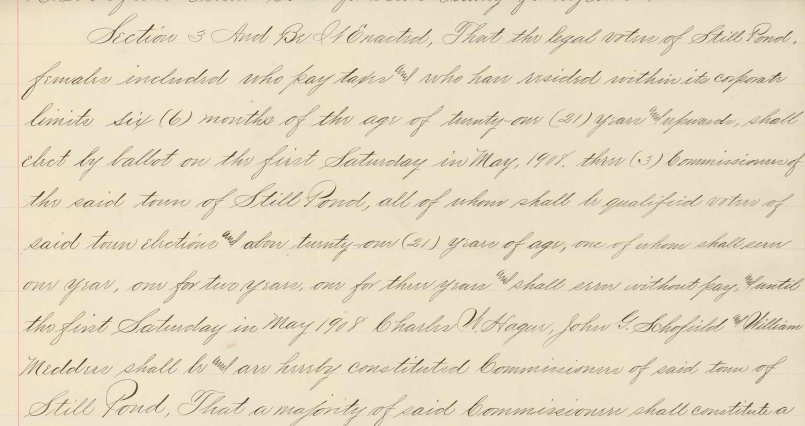 Section 3 And Be It Enacted, That the legal voters of Still Pond,
females included who pay taxes and who have resided within its corporate
limits six (6) months of the age of twenty-one (21) years and upwards, shall
elect by ballot on the first Saturday in May, 1908. three (3) Commissioners of
the said town of Still Pond, all of whom shall be qualified voters of
said town elections and above twenty-one (21) years of age, one of whom shall serve
one year, one for two years, one for three years and shall serve without pay, and until
the first Saturday in May 1908 Charles W. Hague, John G. Schofield and William
Medders shall be and are hereby constituted Commissioners of said town of
Still Pond, That a majority of said Commissioners shall constitute a